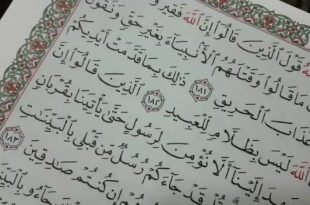 ٱللَّهُ قَوْلَ ٱلَّذِينَ قَالُوٓا۟ إِنَّ ٱللَّهَ فَقِيرٌ
مَا قَالُوا۟ وَقَتْلَهُمُ ٱلْأَنۢبِيَآءَ بِغَيْرِ حَقٍّ وَنَقُولُ
عَذَابَ ٱلْحَرِيقِ ١٨١ ذَٰلِكَ بِمَا قَدَّمَتْ أَيْدِيكُمْ
ٱللَّهَ لَيْسَ بِظَلَّامٍ لِّلْعَبِيدِ ١٨٢ ٱلَّذِينَ قَالُوٓا۟ إِنَّ
ٱللَّهَ عَهِدَ إِلَيْنَآ أَلَّا نُؤْمِنَ لِرَسُولٍ حَتَّىٰ يَأْتِيَنَا بِقُرْبَانٍ
قُلْ قَدْ جَآءَكُمْ رُسُلٌ مِّن قَبْلِى بِٱلْبَيِّنَٰتِ
إِن كُنتُمْ صَٰدِقِينَ ١٨٣
جَآءُو